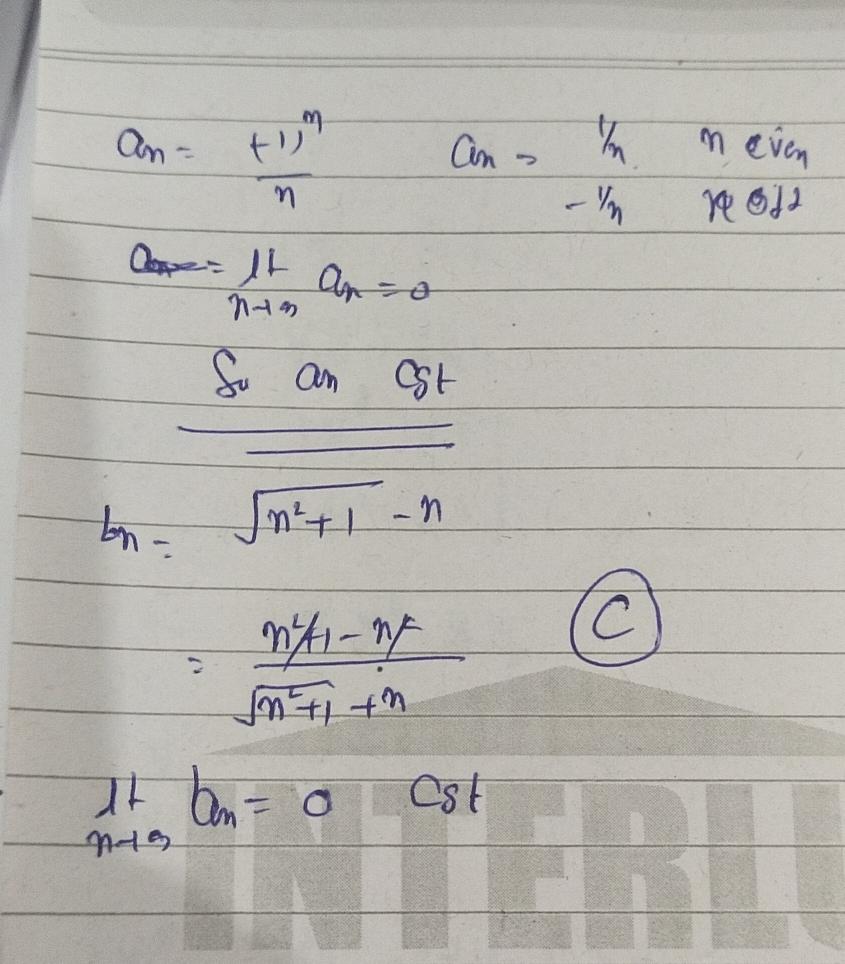 an = (-1)^n / n    an = 1/n    n even
-1/n    n odd
= lt n→∞ an = 0
So an Cgt
bn = √(n²+1) - n
= (n²+1 - n²) / (√(n²+1) + n)    C
lt n→∞ bn = 0    Cgt
INTERLU